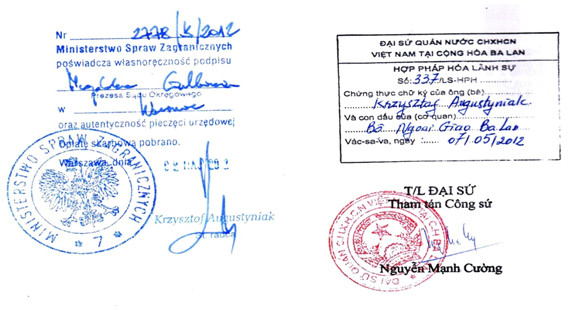 Nr 2778/K/2012
Ministerstwo Spraw Zagranicznych
poświadcza własnoręczność podpisu
Prezesa Sądu Okręgowego
w
oraz autentyczność pieczęci urzędowej
Opłatę skarbową pobrano.
Warszawa, dnia
Krzysztof Augustyniak
MINISTERSTWO SPRAW ZAGRANICZNYCH
* 7 *
ĐẠI SỨ QUÁN NƯỚC CHXHCN
VIỆT NAM TẠI CỘNG HÒA BA LAN
HỢP PHÁP HÓA LÃNH SỰ
Số: 337/LS-HPH
Chứng thực chữ ký của ông (bà)
Krzysztof Augustyniak
Và con dấu của (cơ quan)
Bộ Ngoại Giao Ba Lan
Vác-sa-va, ngày: 07/05/2012
T/L ĐẠI SỨ
Tham tán Công sứ
Nguyễn Mạnh Cường